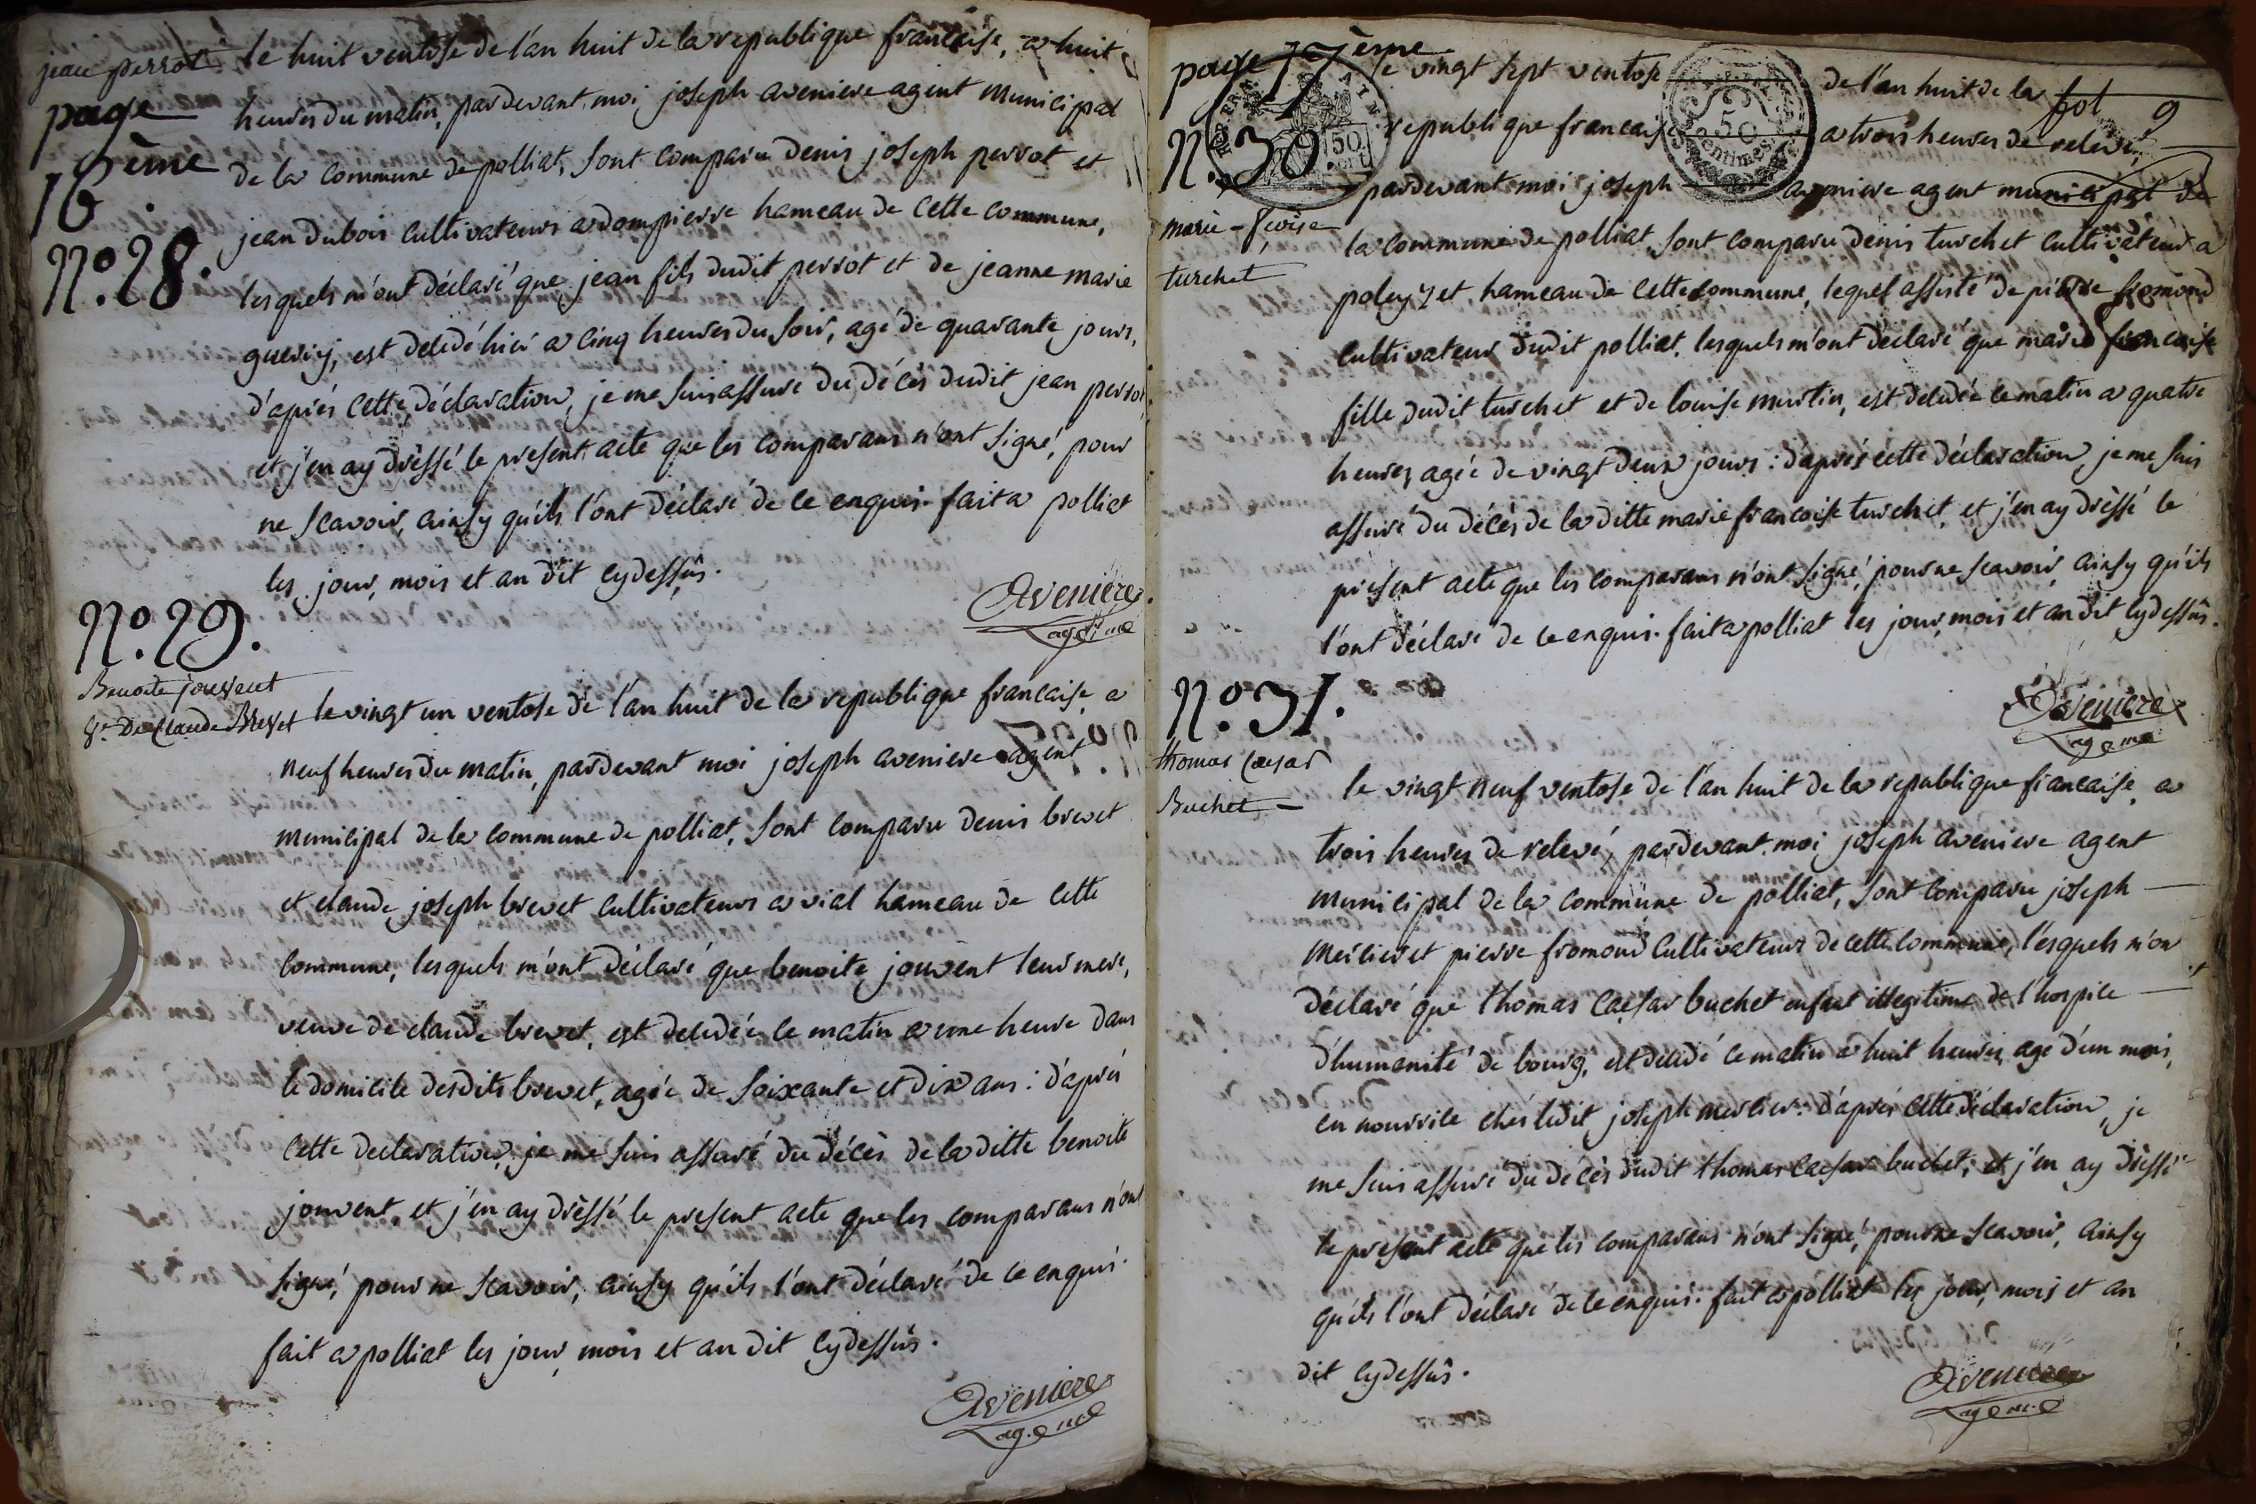 jean perrot
page
16ème.
N.º 28.
le huit ventose de l'an huit de la republique française, a huit
heures du matin, pardevant moi joseph aveniere agent municipal
de la commune de polliat, sont comparu denis joseph perrot et
jean dubois cultivateurs a dompierre hameau de cette commune,
lesquels m'ont déclaré que jean fils dudit perrot et de jeanne marie
guerin, est décédé hier a cinq heures du soir, agé de quarante jours,
d'aprés cette déclaration, je me suis assuré du décès dudit jean perrot
et j'en ay dressé le present acte que les comparans n'ont signé, pour
ne scavoir, ainsy qu'ils l'ont déclaré de ce enquis. fait a polliat
les jour, mois et an dit cydessus.
Aveniere
ag. mal
N.º 29.
Benoite jouvent
Vve De Claude Brevet
le vingt un ventose de l'an huit de la republique francaise, a
neuf heures du matin, pardevant moi joseph aveniere agent
municipal de la commune de polliat, sont comparu denis brevet
et claude joseph brevet cultivateurs a vial hameau de cette
commune, lesquels m'ont déclaré que benoite jouvent leur mere,
veuve de claude brevet, est décédée ce matin a une heure dans
le domicile desdits brevet, agée de soixante et dix ans : d'aprés
cette declaration, je me suis assuré du décès de la ditte benoite
jouvent, et j'en ay dressé le present acte que les comparans n'ont
signé, pour ne scavoir, ainsy qu'ils l'ont déclaré de ce enquis.
fait a polliat les jour, mois et an dit cydessus.
Aveniere
ag. mal
page 17ème
N.º 30
marie - fçoise
turchet
fol 9
50
centimes
le vingt sept ventose de l'an huit de la
republique francaise a trois heures de relevé,
pardevant moi joseph aveniere agent municipal de
la commune de polliat, sont comparu denis turchet cultivateur a
poleyzet hameau de cette commune, lequel assisté de pierre fromond
cultivateur dudit polliat, lesquels m'ont déclaré que marie francoise
fille dudit turchet et de louise martin, est décédée ce matin a quatre
heures agée de vingt deux jours : d'aprés cette déclaration, je me suis
assuré du décès de la ditte marie francoise turchet, et j'en ay dressé le
présent acte que les comparans n'ont signé, pour ne scavoir, ainsy qu'ils
l'ont déclaré de ce enquis. fait a polliat les jour, mois et an dit cydessus.
Aveniere
ag. mal
N.º 31.
thomas Caesar
Buchet
le vingt neuf ventose de l'an huit de la republique francaise, a
trois heures de relevé, pardevant moi joseph aveniere agent
municipal de la commune de polliat, sont comparu joseph
merlier et pierre fromond cultivateurs de cette commune, lesquels m'ont
déclaré que thomas caesar buchet enfant illegitime de l'hospice
d'humanité de bourg, est décédé ce matin a huit heures, agé d'un mois,
en nourrice chés ledit joseph merlier : d'aprés cette déclaration, je
me suis assuré du décès dudit thomas caesar buchet, et j'en ay dressé
le present acte que les comparans n'ont signé, pour ne scavoir, ainsy
qu'ils l'ont déclaré de ce enquis. fait a polliat les jour, mois et an
dit cydessus.
Aveniere
ag. mal